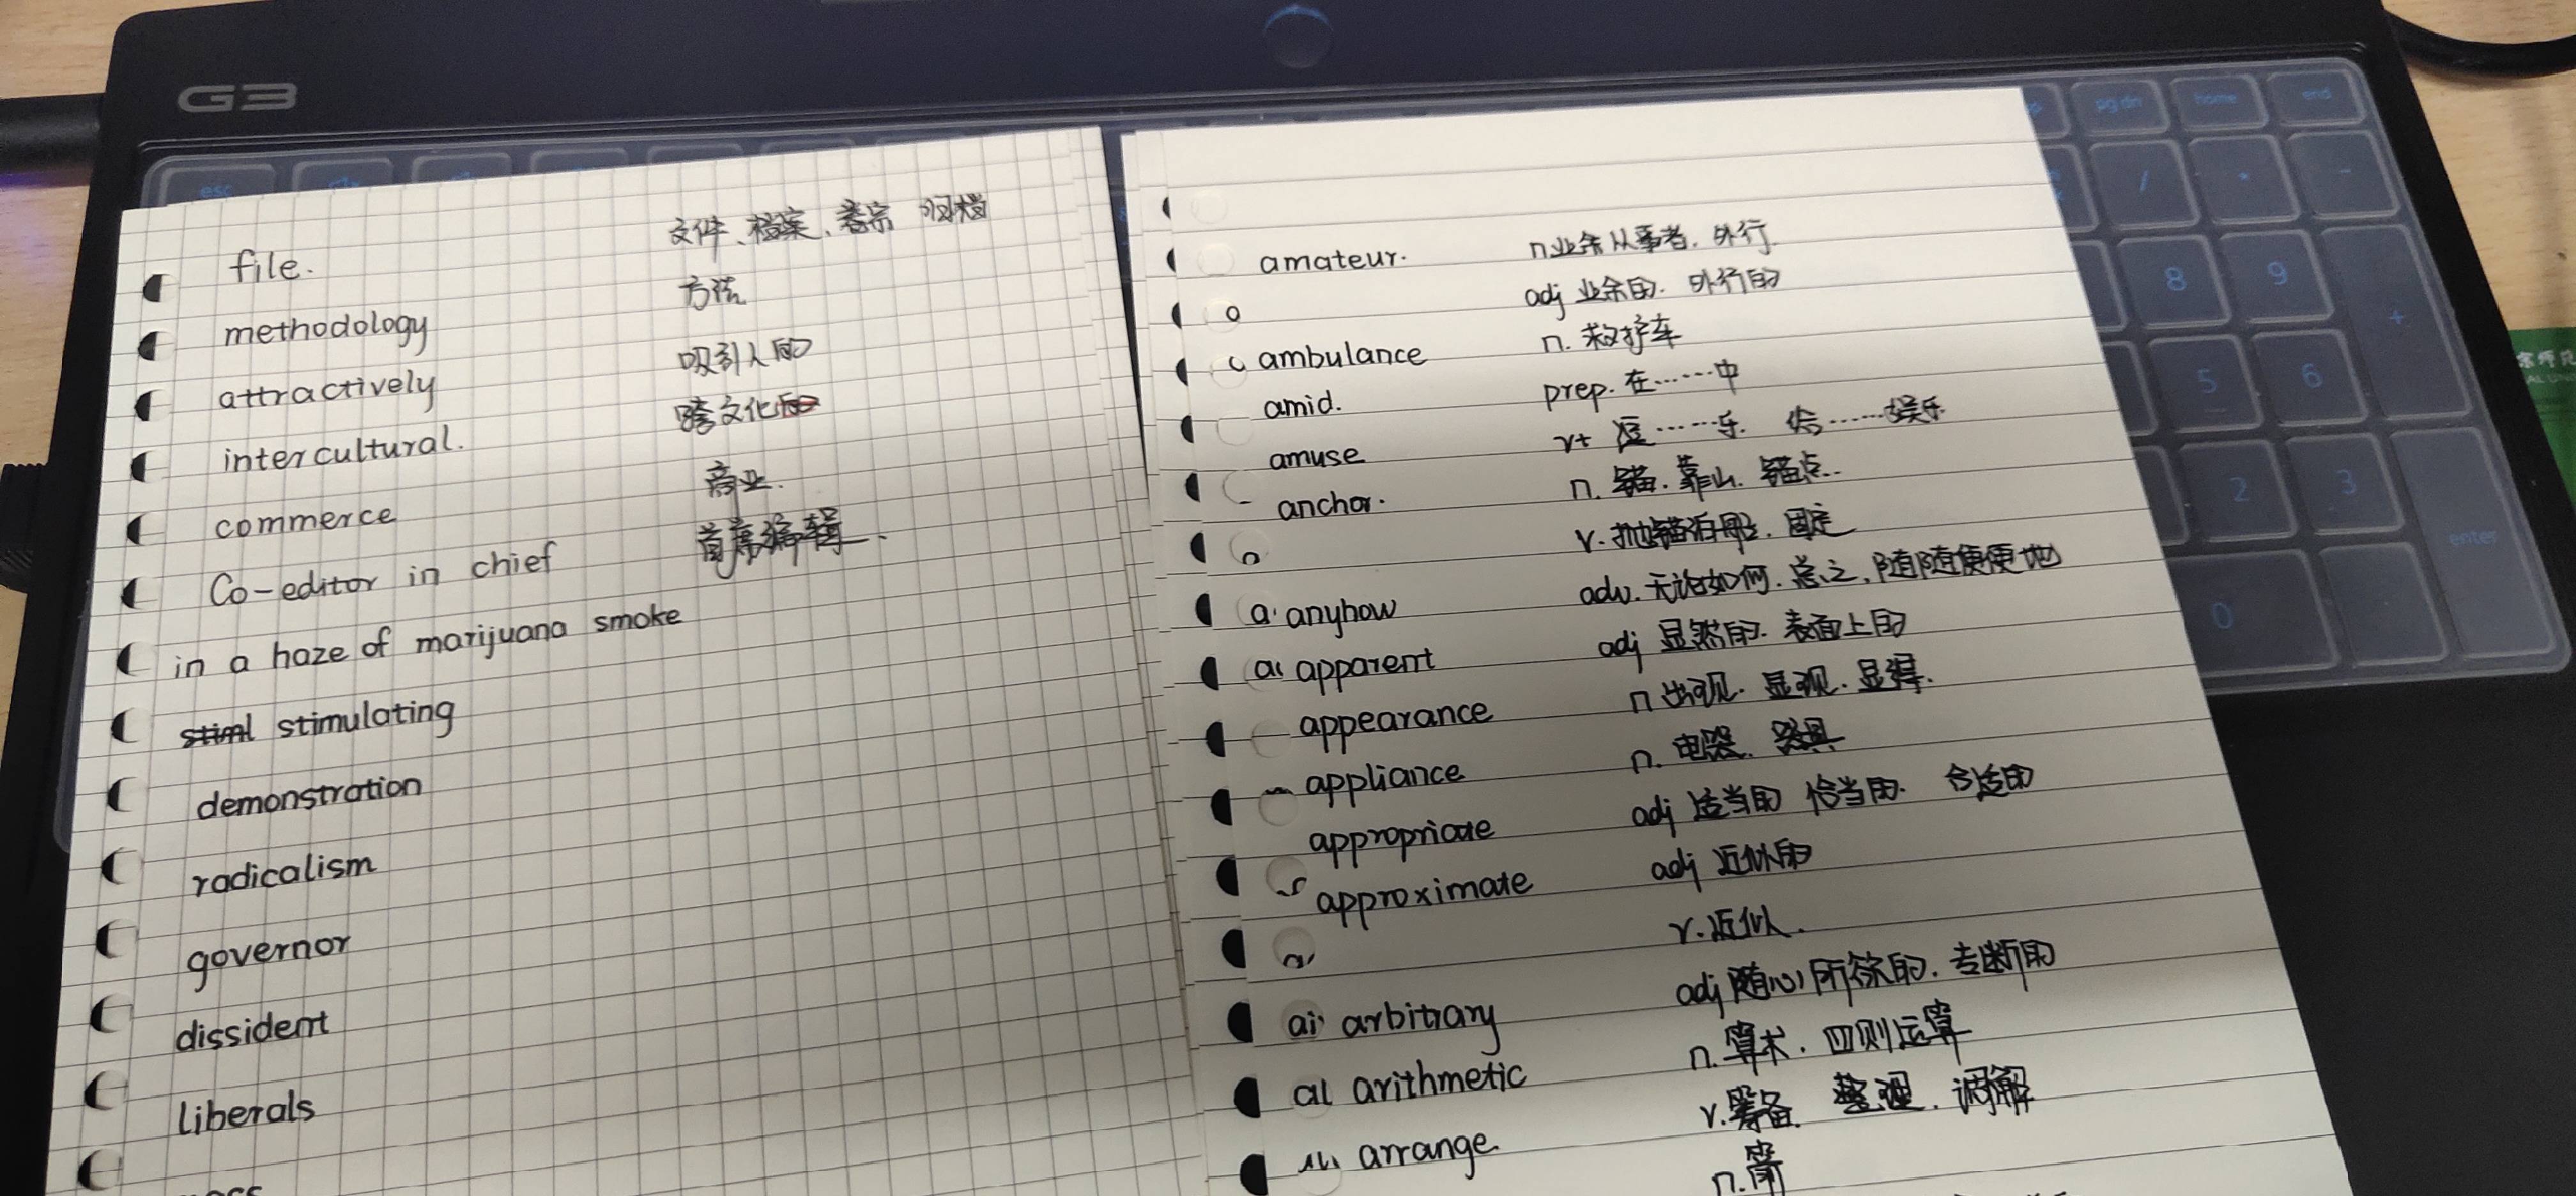 G3
esc
pg dn
home
end
/
*
-
8
9
+
5
6
2
3
enter
0
file. 文件、档案、卷宗 归档
methodology 方法
attractively 吸引人的
intercultural. 跨文化的
commerce 商业.
Co-editor in chief 首席编辑.
in a haze of marijuana smoke
stiml stimulating
demonstration
radicalism
governor
dissident
liberals
amateur. n 业余从事者. 外行
adj 业余的. 外行的
ambulance n. 救护车
amid. prep. 在……中
amuse vt 逗……乐 给……娱乐
anchor. n. 锚. 靠山. 锚点.
v. 抛锚泊船. 固定
anyhow adv. 无论如何. 总之. 随随便便地
apparent adj 显然的. 表面上的
appearance n 出现. 显现. 显得.
appliance n. 电器. 器具
appropriate adj 适当的 恰当的. 合适的
approximate adj 近似的
v. 近似.
arbitrary adj 随心所欲的. 专断的
arithmetic n. 算术. 四则运算
arrange v. 筹备. 整理. 调解
n.